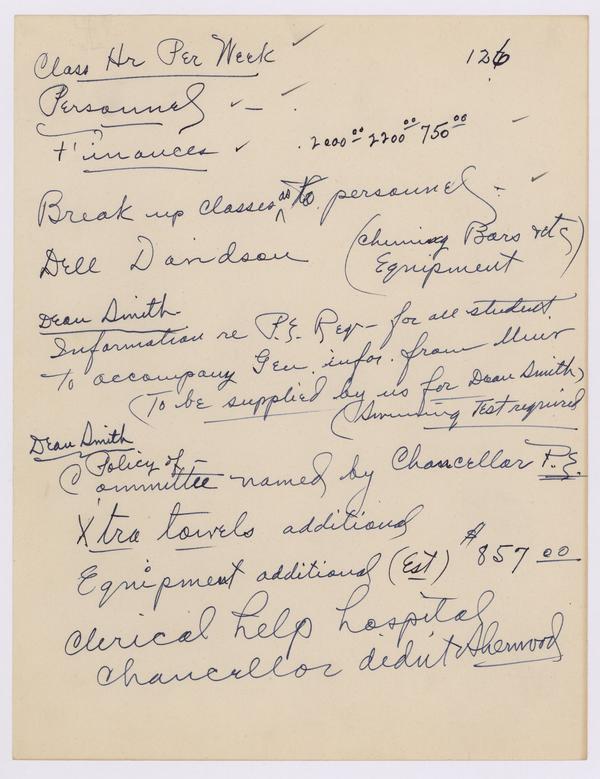 Class Hr Per Week 126
Personnel -
Finances 2000.00 2200.00 750.00
Break up classes as to personnel -
Dell Davidson (Chinning Bars etc
Equipment)
Dean Smith
Information re P.E. Req - for all student.
To accompany Gen. infor. from Univ
(To be supplied by us for Dean Smith)
(Swimming Test required
Dean Smith
(Policy of -
Committee named by Chancellor P.E.
Xtra towels additional
Equipment additional (Est) $857 00
Clerical help hospital
Chancellor didn't Sherwood